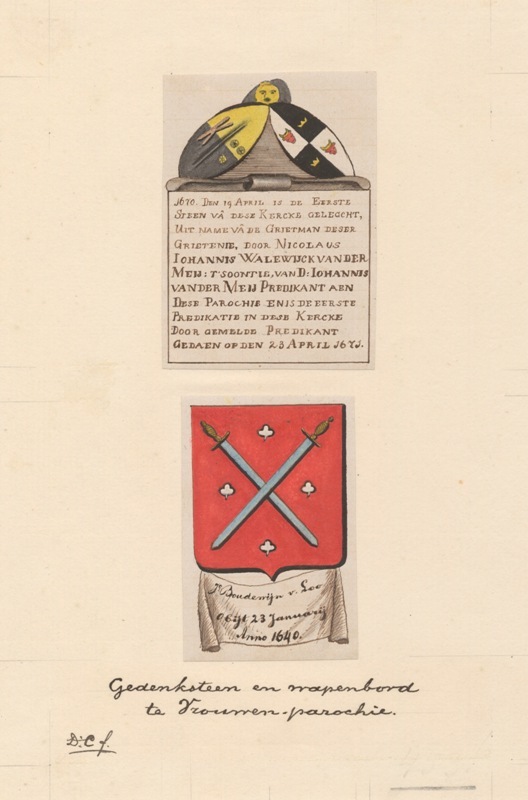 1670. DEN 19 APRIL IS DE EERSTE
STEEN VÂ DESE KERCKE GELEGCHT,
UIT NAME VÂ DE GRIETMAN DESER
GRIETENIE, DOOR NICOLAUS
IOHANNIS WALEWIJCK VAN DER
MEIJ: T'SOONTIE, VAN D: IOHANNIS
VANDER MEIJ PREDIKANT AEN
DESE PAROCHIE EN IS DE EERSTE
PREDIKATIE IN DESE KERCKE
DOOR GEMELDE PREDIKANT
GEDAEN OP DEN 23 APRIL 1671.
Jr Boudewijn v. Loo
Obijt 23 Januarij
Anno 1640.
Gedenksteen en wapenbord
te Vrouwen-parochie.
D:C f.